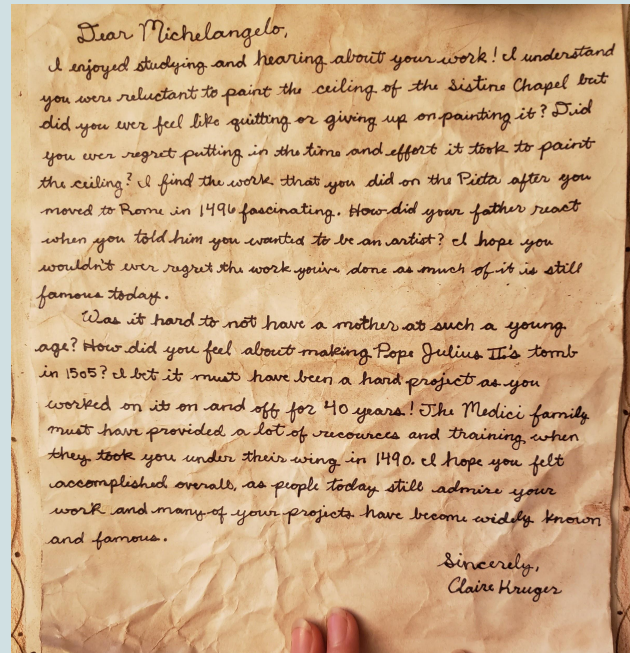 Dear Michelangelo,
I enjoyed studying and hearing about your work! I understand
you were reluctant to paint the ceiling of the Sistine Chapel but
did you ever feel like quitting or giving up on painting it? Did
you ever regret putting in the time and effort it took to paint
the ceiling? I find the work that you did on the Pieta after you
moved to Rome in 1496 fascinating. How did your father react
when you told him you wanted to be an artist? I hope you
wouldn't ever regret the work you've done as much of it is still
famous today.
Was it hard to not have a mother at such a young
age? How did you feel about making Pope Julius II's tomb
in 1505? I bet it must have been a hard project as you
worked on it on and off for 40 years! The Medici family
must have provided a lot of recources and training when
they took you under their wing in 1490. I hope you felt
accomplished overall, as people today still admire your
work and many of your projects have become widely known
and famous.
Sincerely,
Claire Kruger